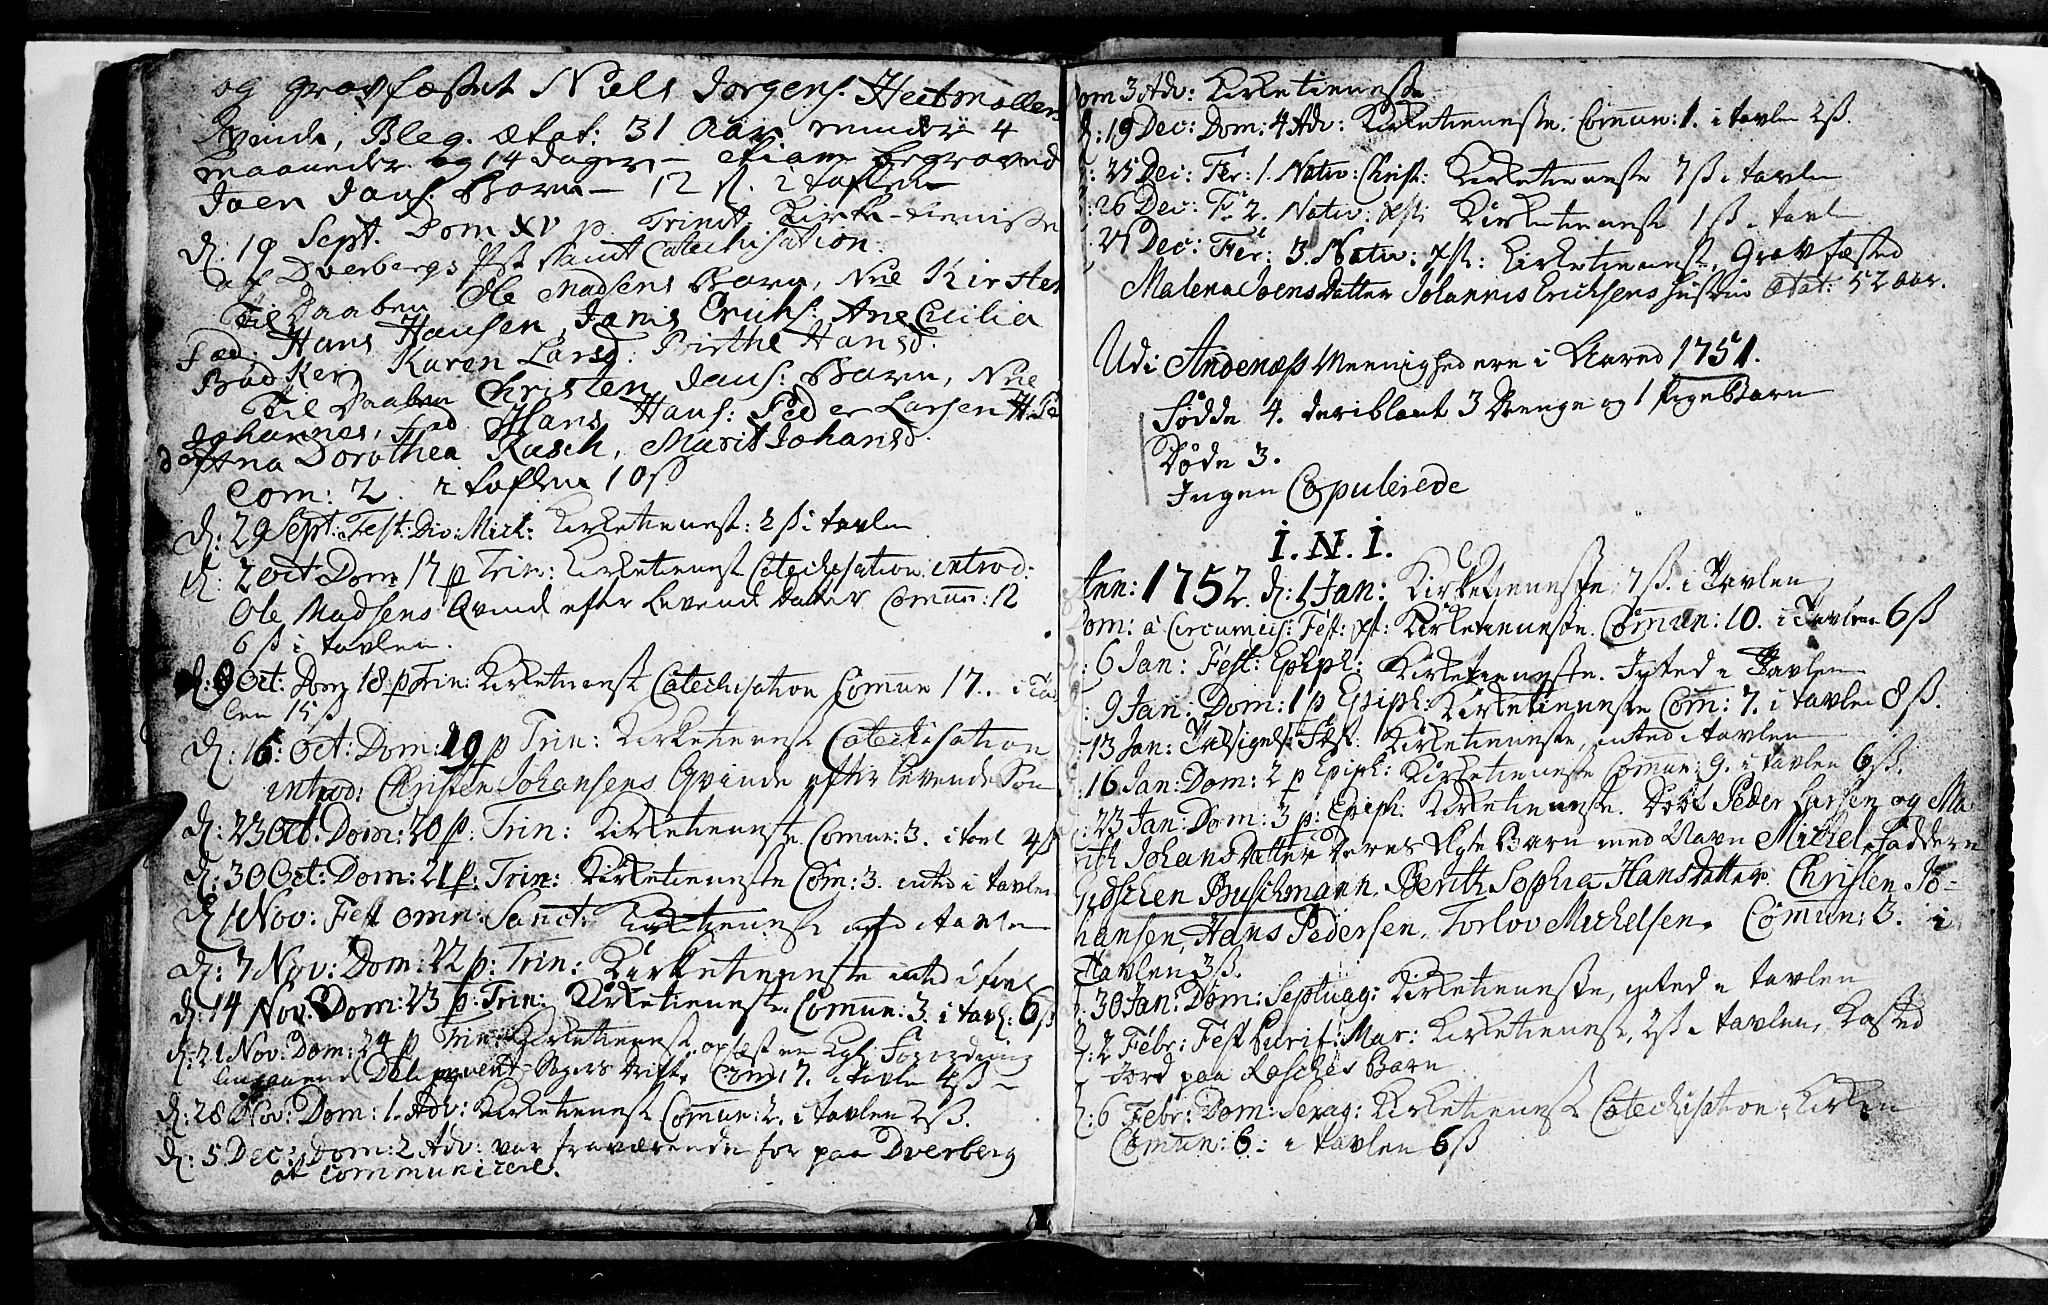 og gravfæstet Niels Jørgens. Heitmøllers
Qvinde, Bleg. ætat: 31 Aar mindre 4
maaneder og 14 dager – etiam begravet
Joen Jans. Barn – 12 ß. i taflen
d: 19 Sept. Dom XV p. Trinit. Kirke-tieniste
af Dverbergs Pst samt Catechisation.
Til Daaben Ole Madsens Barn, Nne Kirsten
Fad. Hans Hansen, Janis Erichs: Ane Cicilia
Bødker, Karen Larsd: Birthe Hansd.
Til Daaben Christen Jans: Barn, Nne
Johannes, Fad Hans Hans: Peder Larsen
Ana Dorothea Rasch, Marit Johansd.
Com: 2. i taflen 10 ß
d: 29 Sept: Fest: Div: Mich: Kirketienest: 2 ß i tavlen
d: 2 Oct Dom 17 p Trin: Kirketienest Catechisation introd:
Ole Madsens Qvinde efter levend Datter Comun: 12
6 ß i tavlen.
d: 9 Oct: Dom 18 p Trin: Kirketienest Catechisation Comun 17. i Tav
len 15 ß
d: 16: Oct: Dom: 19 p Trin: Kirketienest Catechisation
introd: Christen Johansens Qvinde efter levende Søn
d: 23 Oct: Dom: 20 p: Trin: Kirketieneste Comun: 3. i tavl 4 ß
d: 30 Oct: Dom: 21 p: Trin: Kirketieneste Com: 3. inted i tavlen
d 1 Nov: Fest omn: Sanct: Kirketieneste inted i tavlen
d: 7 Nov: Dom: 22 p: Trin: Kirketieneste inted i tavl
d: 14 Nov: Dom: 23 p: Trin: Kirketieneste. Comun: 3. i tavl: 6 ß
d: 21 Nov: Dom: 24 p Trin: Kirketienest, oplæst en Kgl: Forordning
angaaend Delinqvent-Sagers Drift. Com: 7. i tavlen 4 ß –
d: 28 Nov: Dom: 1. Adv: Kirketienest Comun: 2. i tavlen 2 ß.
d: 5 Dec: Dom: 2 Adv: var fraværende for paa Dverberg
at communicere.
Dom 3 Adv: Kirketieneste
d: 19 Dec: Dom: 4 Adv: Kirketieneste. Comun: 1. i tavlen 2 ß.
d: 25 Dec: Fer: 1. Nativ: Christ: Kirketieneste 7 ß i tavlen
: 26 Dec: F. 2. Nativ: Xsti Kirketieneste 1 ß i tavlen
: 27 Dec: Fer: 3. Nativ: Xsti: Kirketieneste, Gravfæsted
Malena Joens Datter Johannis Erichsens Hustrue Ætat: 52 aar.
Udi Andenæss Meenighed ere i Aared 1751.
Fødde 4. deriblant 3 Drenge og 1 Pigebarn
Døde 3.
Ingen Copulerede
I. N. I.
Ann: 1752. d: 1 Jan: Kirketieneste 7 ß. i Tavlen
Dom: à Circumcis: Fest: Xst: Kirketieneste. Comun: 10. i Tavlen 6 ß
: 6 Jan: Fest: Epiph: Kirketieneste. Inted i Tavlen
: 9 Jan: Dom: 1 p Epiph: Kirketieneste Com: 7. i tavlen 8 ß.
: 13 Jan: Taksigels: Fest: Kirketieneste, inted i tavlen
: 16 Jan: Dom: 2 p Epiph: Kirketieneste Comun: 9. i tavlen 6 ß.
: 23 Jan: Dom: 3 p: Epiph: Kirketieneste. Døbt Peder Larsen og Ma
rith Johans Datter deres Ægte Barn med Navn Michel, Faddere
Giøschen Buschmann, Berith Sophia Hans Datter. Christen Jo-
hansen, Hans Pedersen, Torlov Michelsen. Comun: 3. i
Tavlen 3 ß.
: 30 Jan: Dom: Septuag: Kirketieneste, inted i tavlen
d: 2 Febr: Fest Purif: Mar: Kirketieneste, 2 ß i tavlen, Kasted
Jord paa Rasches Barn
d: 6 Febr: Dom: Sexag: Kirketieneste Catechisation i Kirken
Comun: 6: i tavlen 6 ß